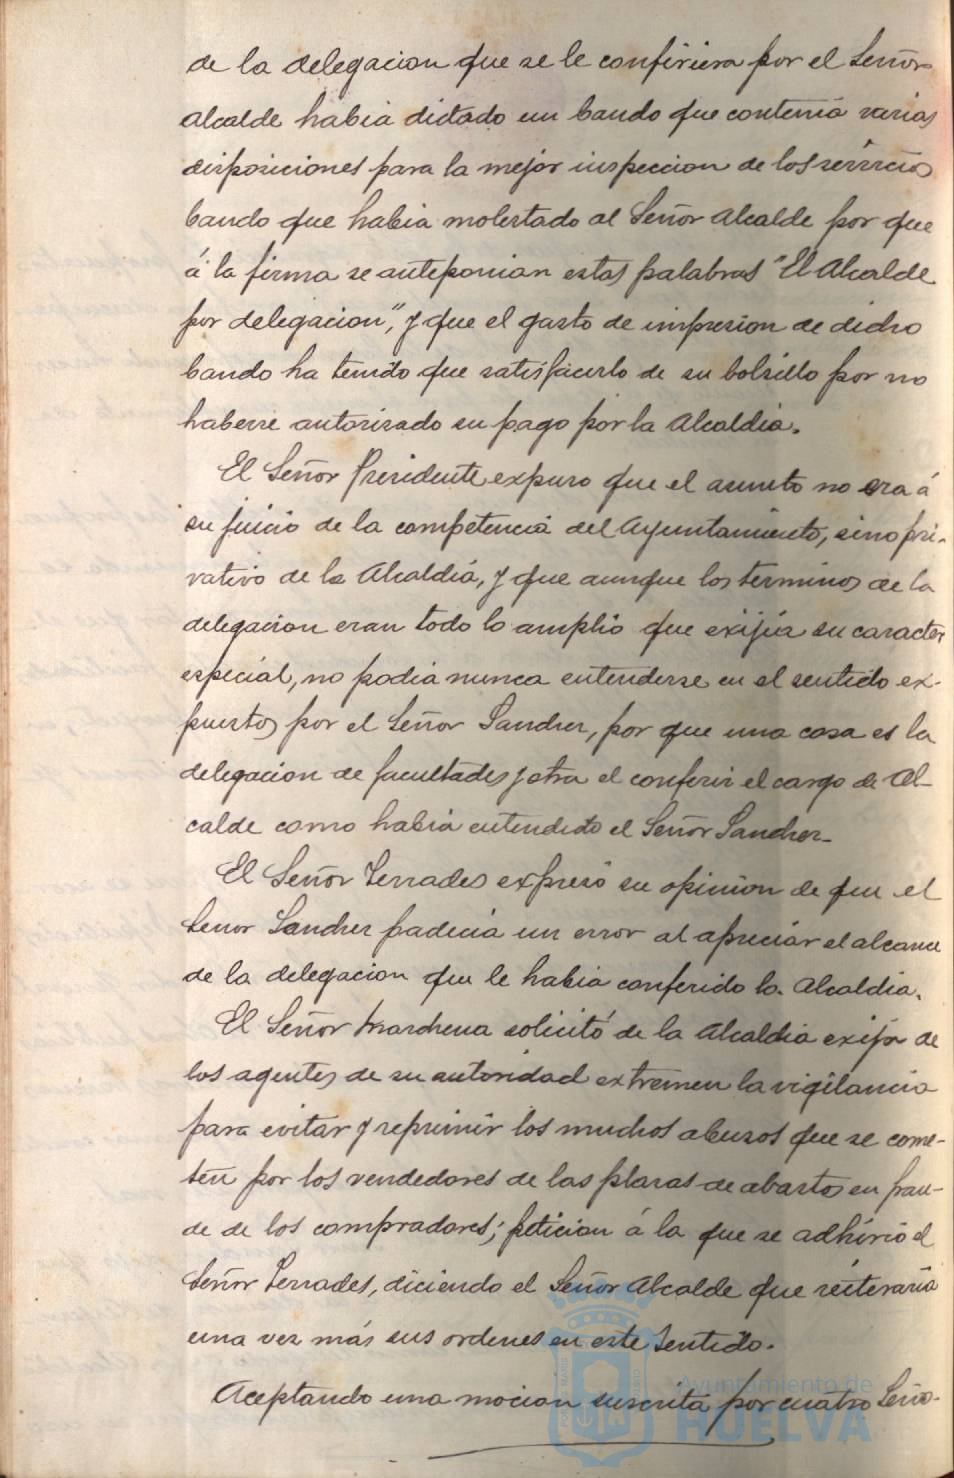 de la delegacion que se le confiriera por el Señor
alcalde habia dictado un bando que contenia varias
disposiciones para la mejor inspeccion de los servicios
bando que habia molestado al Señor Alcalde por que
á la firma se anteponian estas palabras "El Alcalde
por delegacion", y que el gasto de impresion de dicho
bando ha tenido que satisfacerlo de su bolsillo por no
haberse autorisado su pago por la Alcaldia.
El Señor Presidente expuso que el asunto no era á
su juicio de la competencia del Ayuntamiento, sino pri-
vativo de la Alcaldia, y que aunque los terminos de la
delegacion eran todo lo amplio que exijia su caracter
especial, no podia nunca entenderse en el sentido ex-
puesto por el Señor Sanchez, por que una cosa es la
delegacion de facultades y otra el conferir el cargo de Al-
calde como habia entendido el Señor Sanchez.
El Señor Terrades expresó su opinion de que el
Señor Sanchez padecia un error al apreciar el alcance
de la delegacion que le habia conferido la Alcaldia.
El Señor Marchena solicitó de la Alcaldia exija de
los agentes de su autoridad extremen la vigilancia
para evitar y reprimir los muchos abusos que se come-
ten por los vendedores de las plazas de abastos en frau-
de de los compradores; peticion á la que se adhirió el
Señor Terrades, diciendo el Señor Alcalde que reiteraria
una vez más sus ordenes en este sentido.
Aceptando una mocion suscrita por cuatro Seño-
Ayuntamiento de
HUELVA